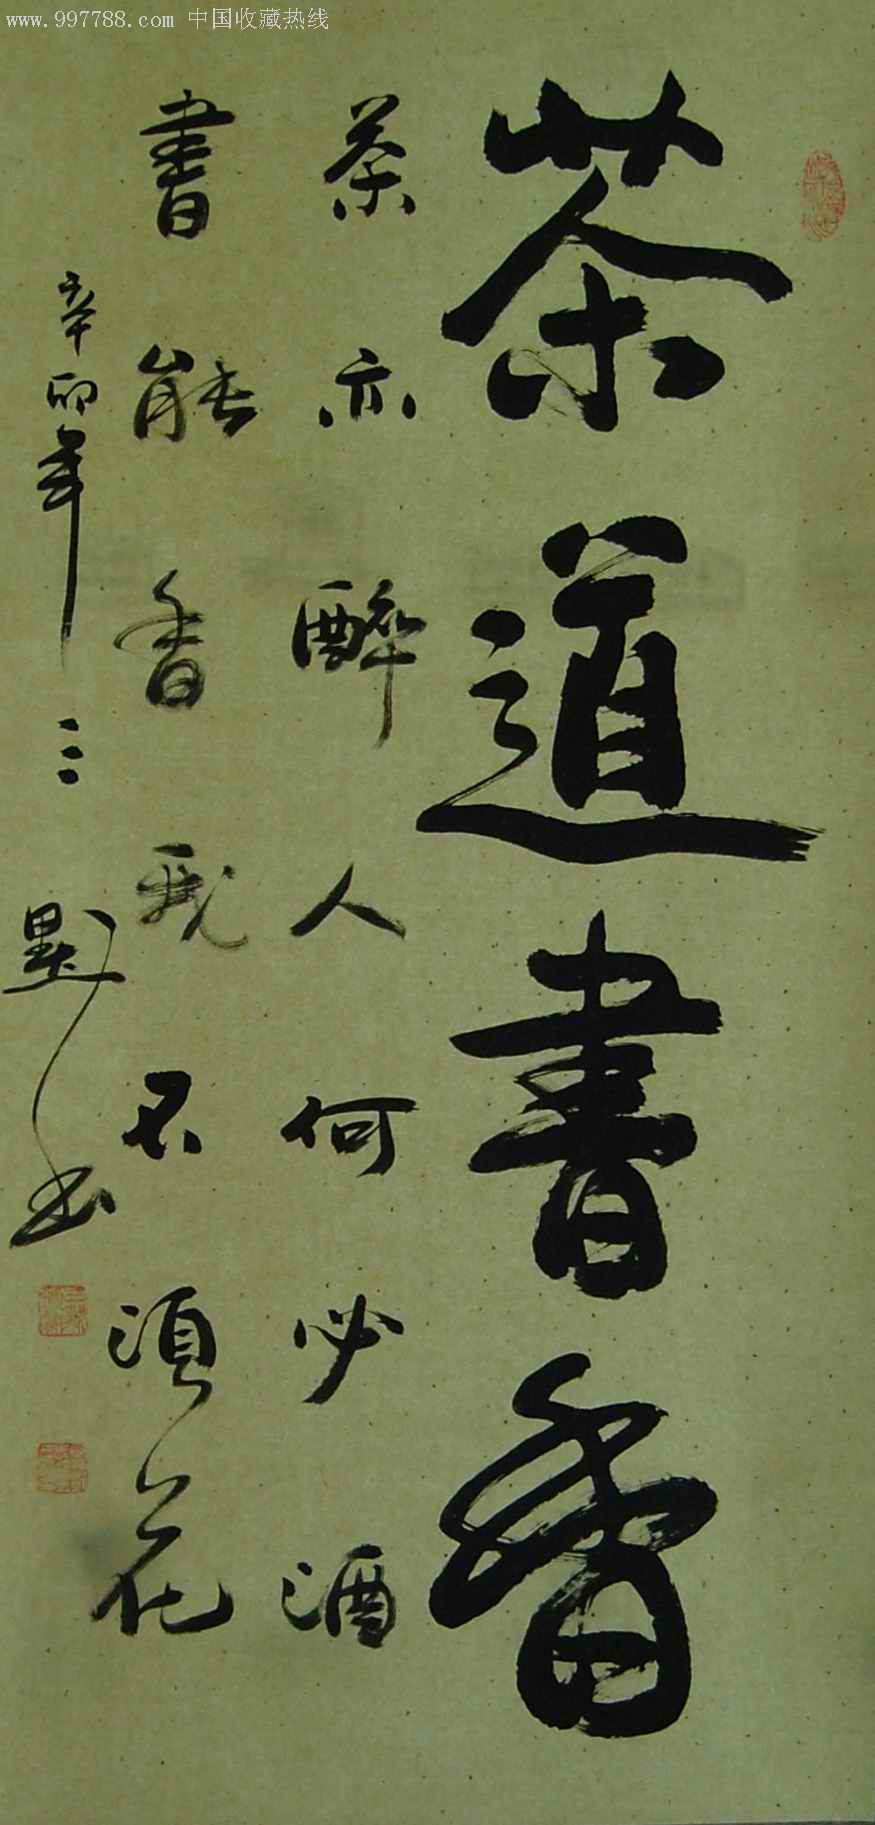 www.997788.com 中国收藏热线
茶道書香
茶亦醉人何必酒
書能香我不須花
辛卯年三默书